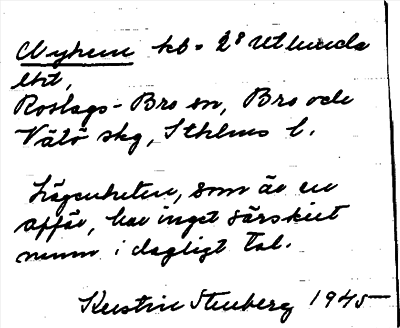 Nyhem kb. 2⁸ Utlunda
ägt,
Roslags-Bro sn, Bro och
Vätö skg, Sthlms l.
Lägenheten, som är en
affär, har inget särskilt
namn i dagligt tal.
Kerstin Stenberg 1945